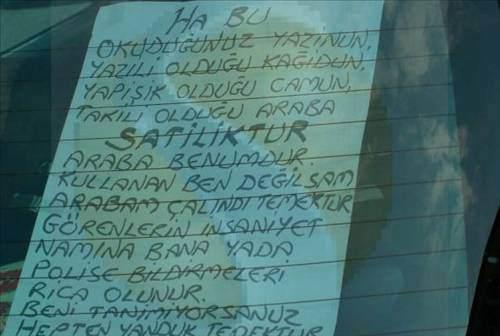 HA BU
OKUDUĞUNUZ YAZİNUN,
YAZILI OLDUĞU KAĞIDUN,
YAPİŞİK OLDUĞU CAMUN,
TAKİLİ OLDUĞU ARABA
SATİLİKTUR
ARABA BENUMDUR.
KULLANAN BEN DEĞİLSAM
ARABAM ÇALINDI TEMEKTUR
GÖRENLERİN İNSANİYET
NAMINA BANA YADA
POLİSE BİLDİRMELERİ
RİCA OLUNUR.
BENİ TANIMIYORSANUZ
HEPTEN YANDUK TEMEKTUR